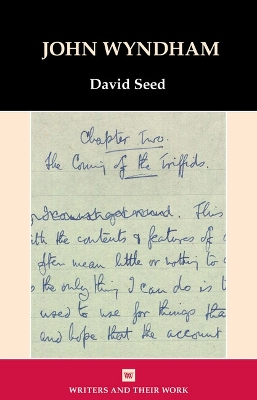 JOHN WYNDHAM
David Seed
Chapter Two.
The Coming of the Triffids.
record. This
with the contents & features of
often mean little or nothing to
s the only thing I can do is t
used to use for things tha
and hope that the account
WRITERS AND THEIR WORK